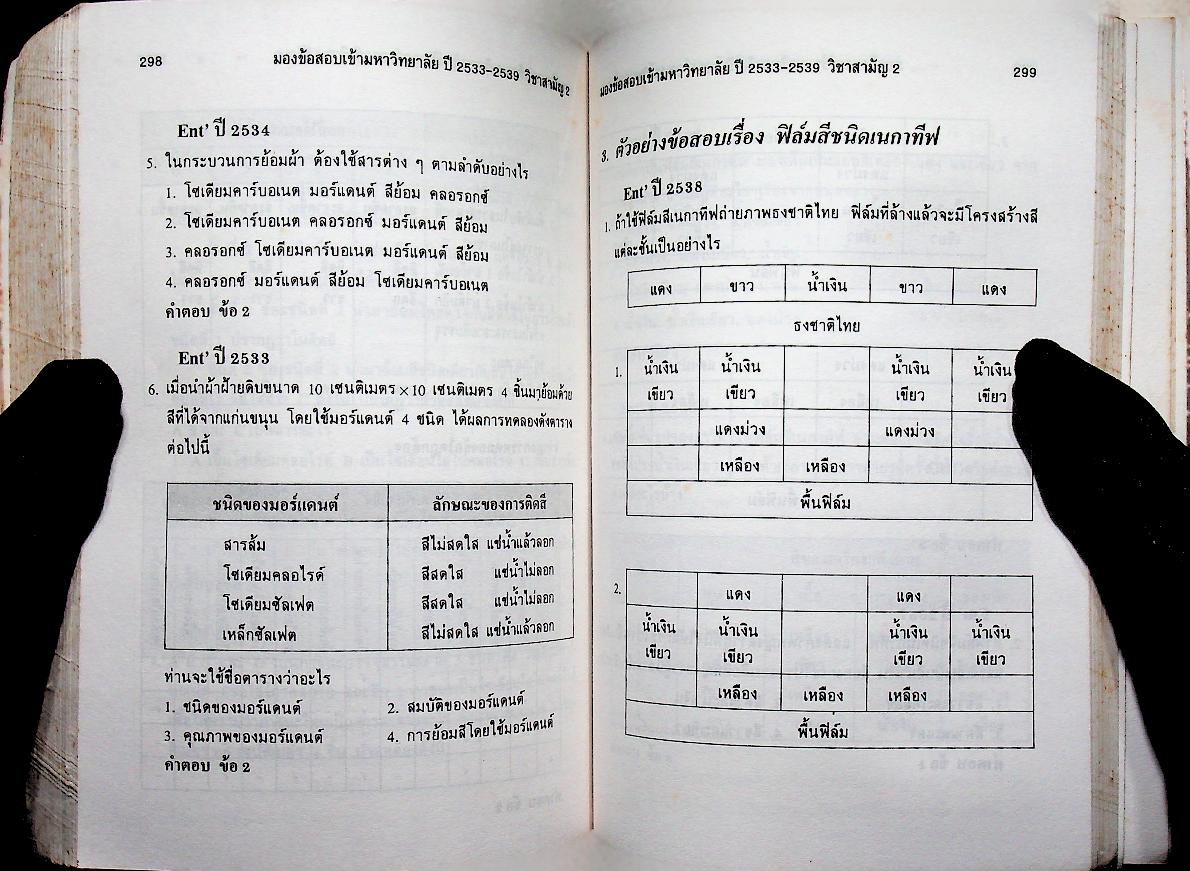 298
มองข้อสอบเข้ามหาวิทยาลัย ปี 2533-2539 วิชาสามัญ 2
Ent' ปี 2534
5. ในกระบวนการย้อมผ้า ต้องใช้สารต่าง ๆ ตามลำดับอย่างไร
1. โซเดียมคาร์บอเนต มอร์แดนต์ สีย้อม คลอรอกซ์
2. โซเดียมคาร์บอเนต คลอรอกซ์ มอร์แดนต์ สีย้อม
3. คลอรอกซ์ โซเดียมคาร์บอเนต มอร์แดนต์ สีย้อม
4. คลอรอกซ์ มอร์แดนต์ สีย้อม โซเดียมคาร์บอเนต
คำตอบ ข้อ 2
Ent' ปี 2533
6. เมื่อนำผ้าฝ้ายดิบขนาด 10 เซนติเมตร × 10 เซนติเมตร 4 ชิ้นมาย้อมด้วย
สีที่ได้จากแก่นขนุน โดยใช้มอร์แดนต์ 4 ชนิด ได้ผลการทดลองดังตาราง
ต่อไปนี้
ชนิดของมอร์แดนต์ ลักษณะของการติดสี
สารส้ม สีไม่สดใส แช่น้ำแล้วลอก
โซเดียมคลอไรด์ สีสดใส แช่น้ำไม่ลอก
โซเดียมซัลเฟต สีสดใส แช่น้ำไม่ลอก
เหล็กซัลเฟต สีไม่สดใส แช่น้ำแล้วลอก
ท่านจะใช้ชื่อตารางว่าอะไร
1. ชนิดของมอร์แดนต์ 2. สมบัติของมอร์แดนต์
3. คุณภาพของมอร์แดนต์ 4. การย้อมสีโดยใช้มอร์แดนต์
คำตอบ ข้อ 2
มองข้อสอบเข้ามหาวิทยาลัย ปี 2533-2539 วิชาสามัญ 2
299
8. ตัวอย่างข้อสอบเรื่อง ฟิล์มสีชนิดเนกาทีฟ
Ent' ปี 2538
1. ถ้าใช้ฟิล์มสีเนกาทีฟถ่ายภาพธงชาติไทย ฟิล์มที่ล้างแล้วจะมีโครงสร้างสี
แต่ละชั้นเป็นอย่างไร
แดง ขาว น้ำเงิน ขาว แดง
ธงชาติไทย
1. น้ำเงิน น้ำเงิน น้ำเงิน น้ำเงิน
เขียว เขียว เขียว เขียว
แดงม่วง แดงม่วง
เหลือง เหลือง
พื้นฟิล์ม
2. แดง แดง
น้ำเงิน น้ำเงิน น้ำเงิน น้ำเงิน
เขียว เขียว เขียว เขียว
เหลือง เหลือง เหลือง
พื้นฟิล์ม